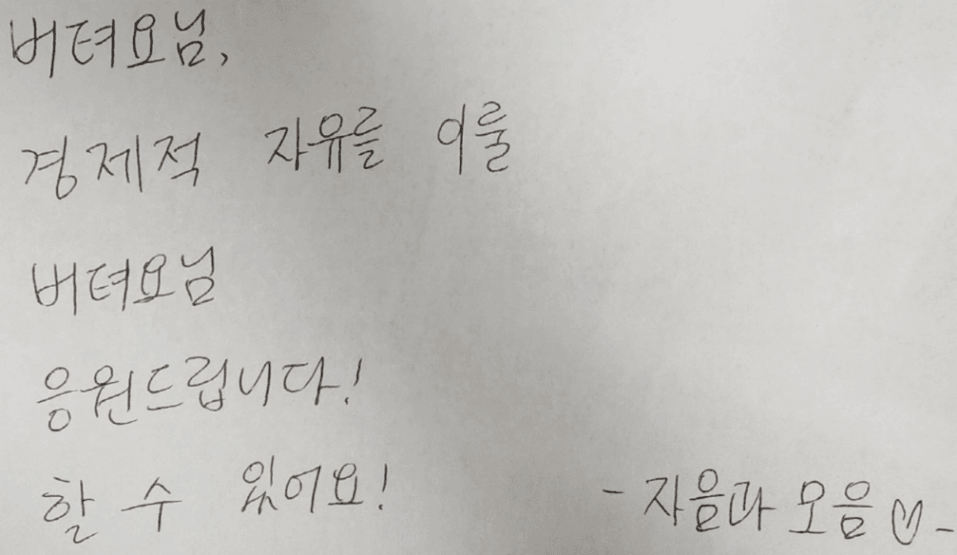 버텨요님,
경제적 자유를 이룰
버텨요님
응원드립니다!
할 수 있어요!
- 자음과 모음♡-